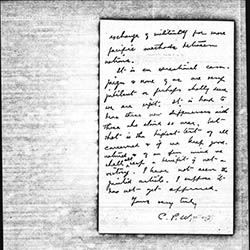 exchange of militarily for more
pacific methods between
nations.
It is an exceptional cam-
paign & none of us are very
jubilant or perhaps wholly sure
we are right. It is hard to
has these new differences with
those who think as we, but
that is the highest test of all
concerned & if we keep good
natured & of an open mind we
shall reap a benefit if not a
victory. I have not seen the
article. I suppose it
has not yet appeared.
Yours very truly
C. P. W